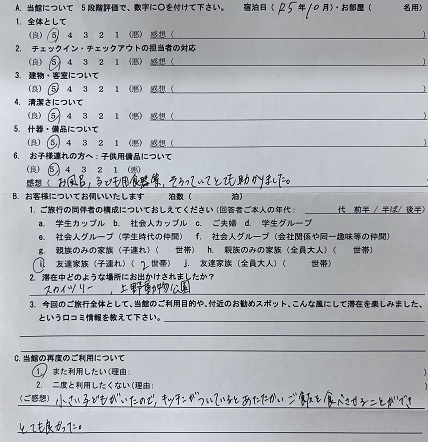 A. 当館について 5段階評価で、数字に○を付けて下さい。 宿泊日( R5年10月)・お部屋( 名用)
1. 全体として
(良) 5 4 3 2 1 (悪) 感想(
2. チェックイン・チェックアウトの担当者の対応
(良) 5 4 3 2 1 (悪) 感想(
3. 建物・客室について
(良) 5 4 3 2 1 (悪) 感想(
4. 清潔さについて
(良) 5 4 3 2 1 (悪) 感想(
5. 什器・備品について
(良) 5 4 3 2 1 (悪) 感想(
6. お子様連れの方へ:子供用備品について
(良) 5 4 3 2 1 (悪)
感想( お風呂、子ども用食器等、そろっていてとても助かりました。
B. お客様についてお伺いいたします 泊数( 泊)
1. ご旅行の同伴者の構成についておしえてください(回答者ご本人の年代: 代 前半/半ば/後半)
a. 学生カップル b. 社会人カップル c. ご夫婦 d. 学生グループ
e. 社会人グループ(学生時代の仲間) f. 社会人グループ(会社関係や同一趣味等の仲間)
g. 親族のみの家族(子連れ)( 世帯) h. 親族のみの家族(全員大人)( 世帯)
i. 友達家族(子連れ)( 2 世帯) j. 友達家族(全員大人)( 世帯)
2. 滞在中どのような場所にお出かけされましたか?
スカイツリー、上野動物公園
3. 今回のご旅行全体として、当館のご利用目的や、付近のお勧めスポット、こんな風にして滞在を楽しみました、
という口コミ情報を教えて下さい。
C. 当館の再度のご利用について
1. また利用したい(理由:
2. 二度と利用したくない(理由:
(ご感想) 小さい子どもがいたので、キッチンがついているとあたたかいご飯を食べさせることができ
とても良かった。